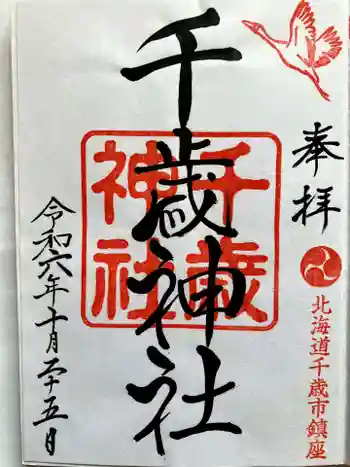 奉拝
北海道千歳市鎮座
千歳神社
千歳神社
令和六年十月二十五日